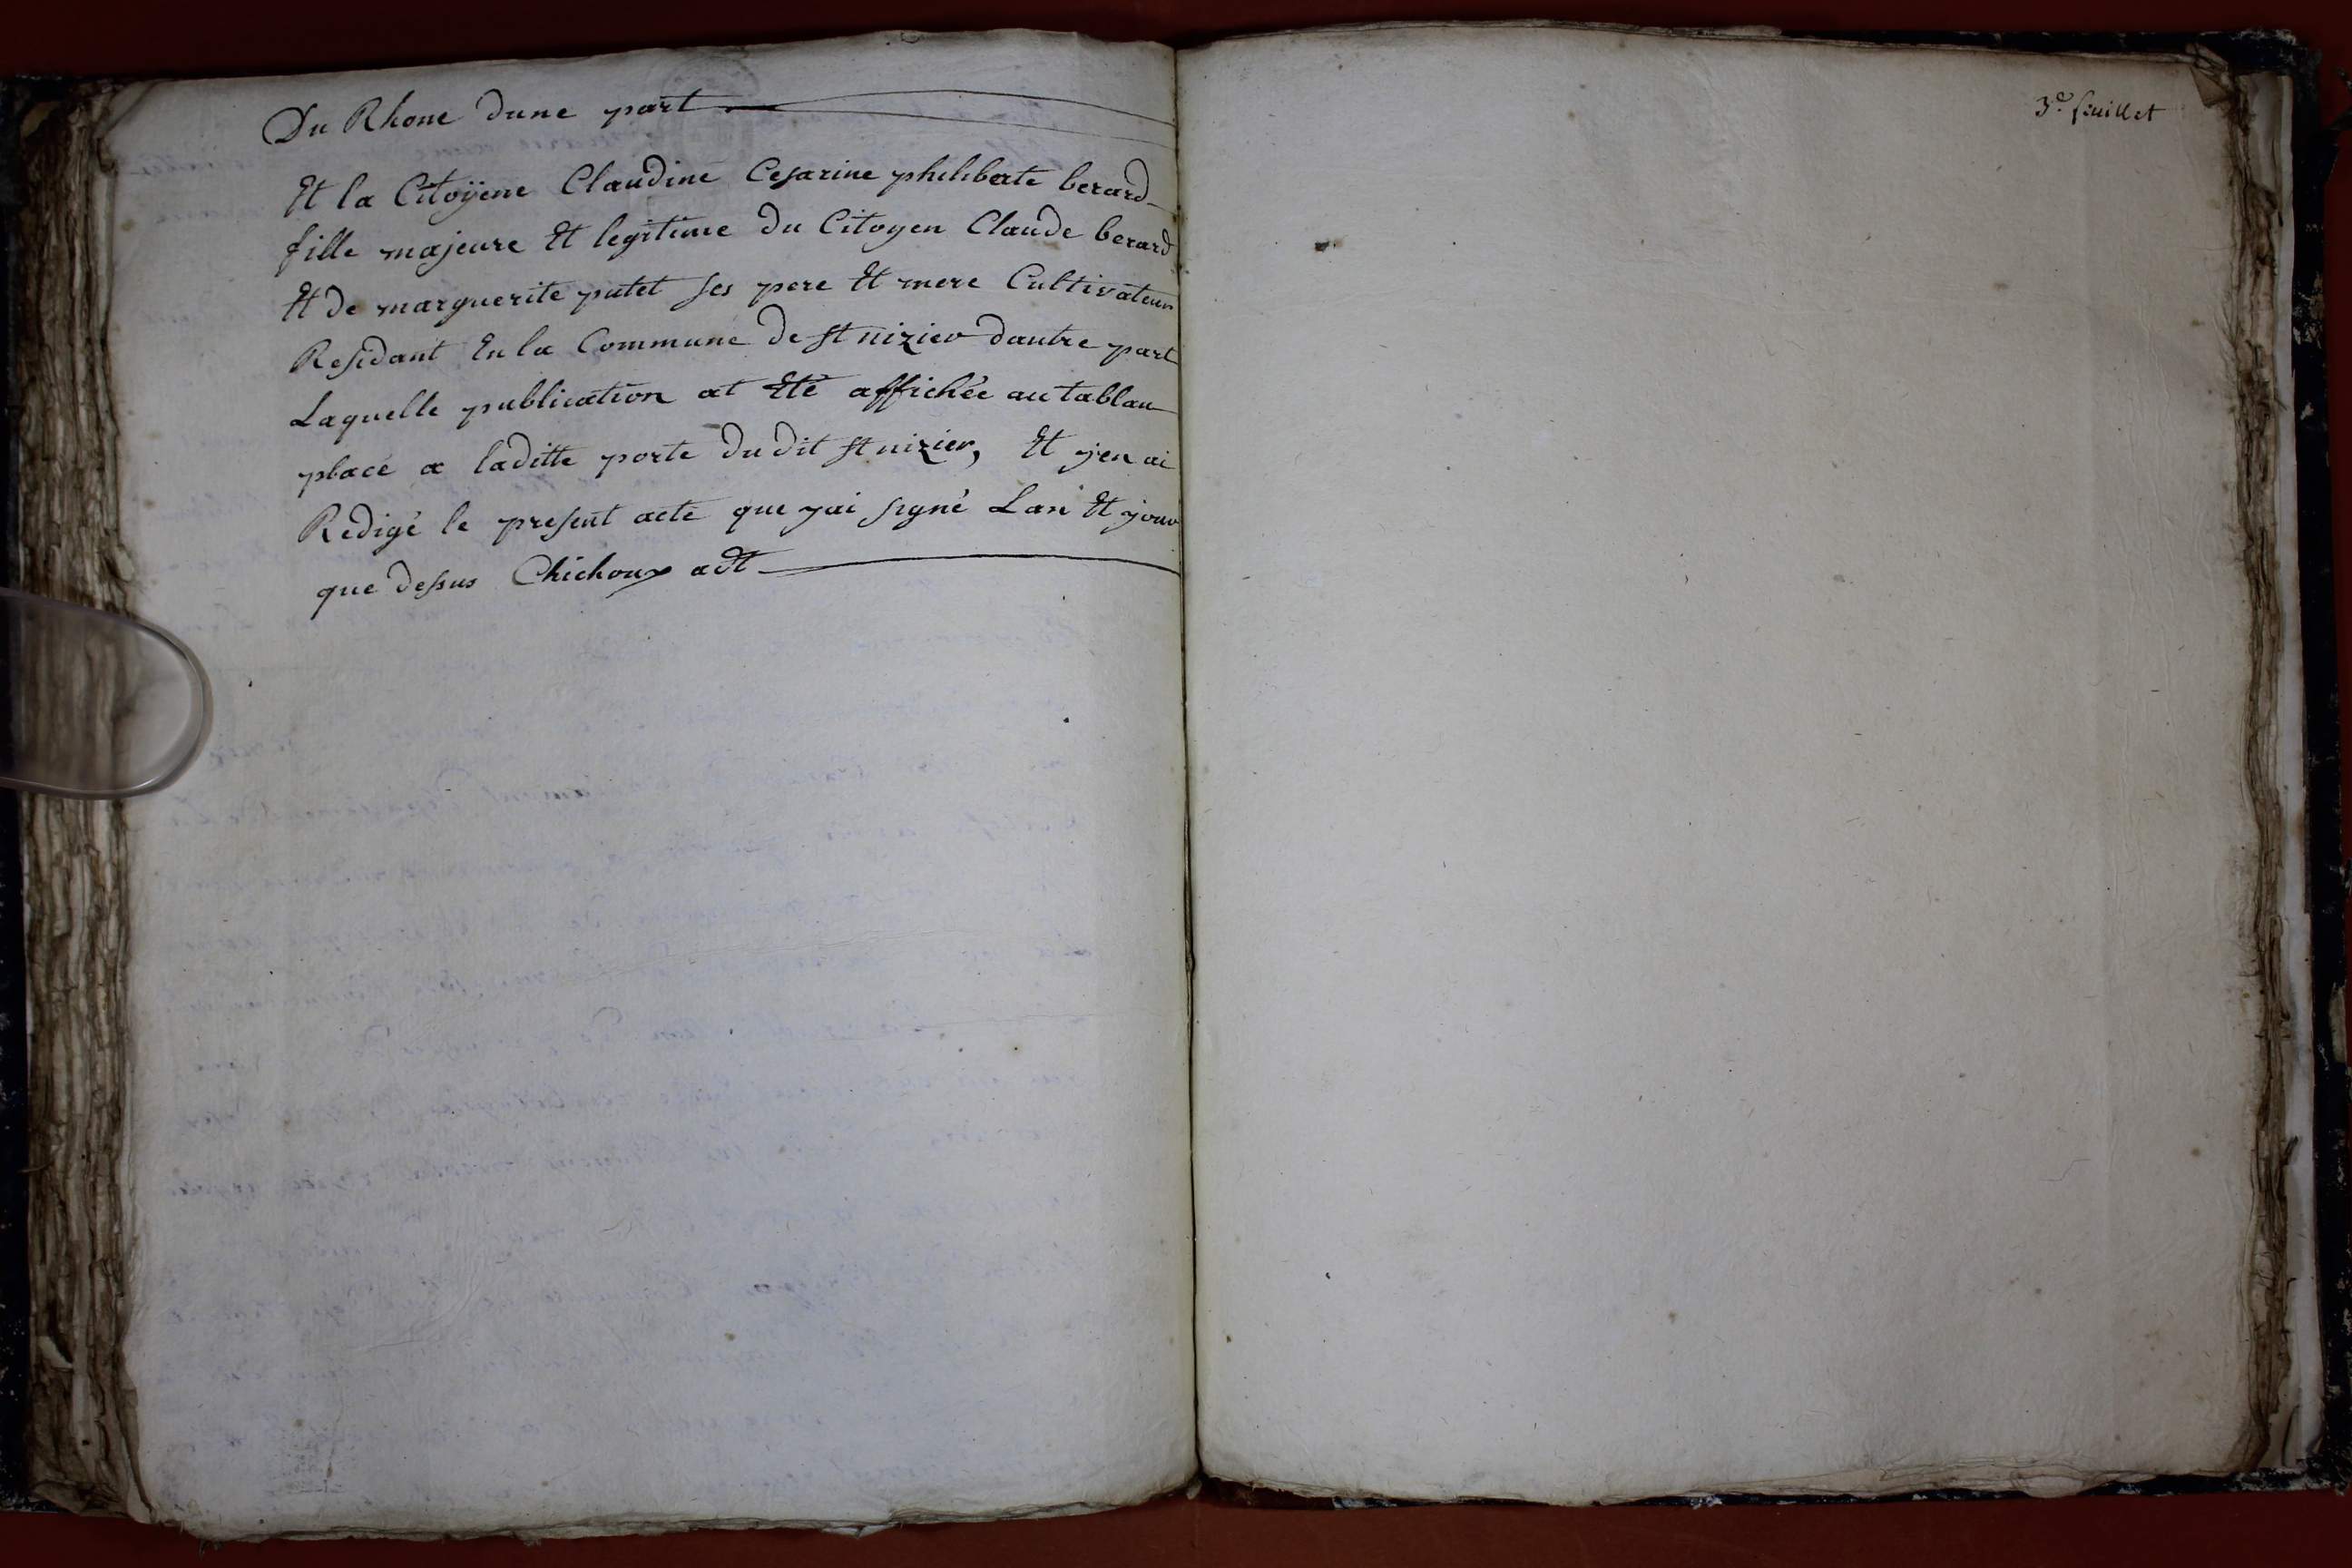 Du Rhone dune part
Et la Citoÿene Claudine Cesarine philiberte berard
fille majeure Et legitime du Citoyen Claude berard
Et de marguerite putet ses pere Et mere Cultivateurs
Residant En la Commune de st nizier dautre part
Laquelle publication at Eté affichée au tablau
placé a laditte porte du dit st nizier, Et jen ai
Redigé le present acte que jai signé Lan Et jour
que dessus Chichoux adt
3e. feuillet